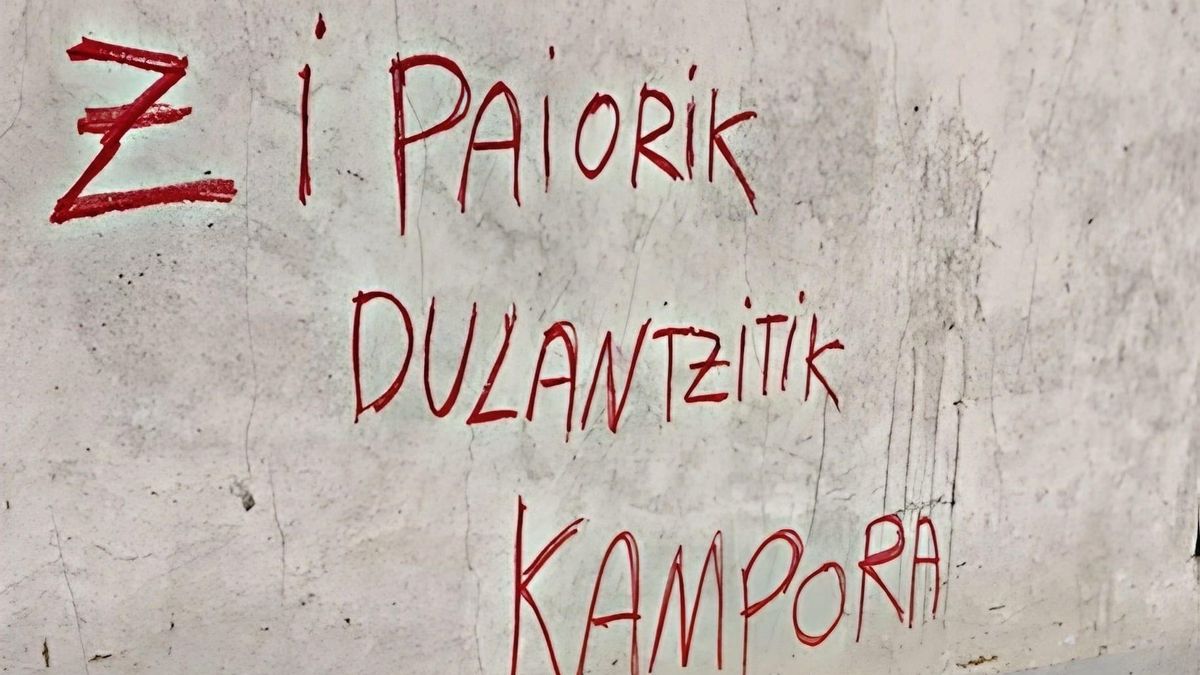 Zi PAiORiK
DULANTZiTiK
KAMPORA